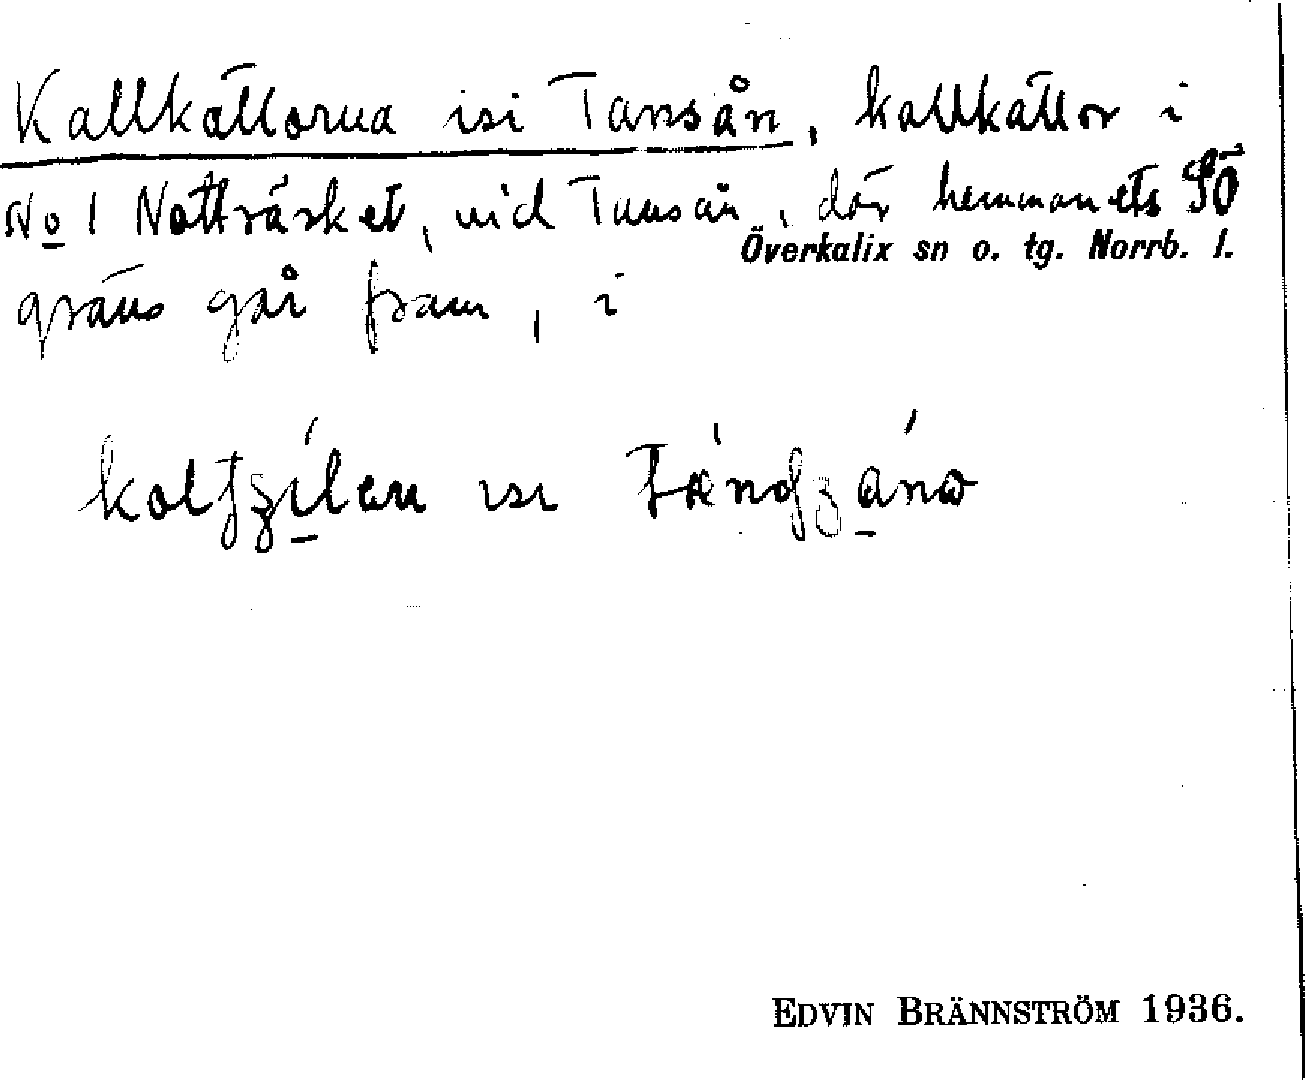 Kallkällorna isi Tansån, kallkällor i
No 1 Nattträsket, vid Tansån, där hemmanets SÖ
Överkalix sn o. tg. Norrb. l.
gräns går fram, i
isi
EDVIN BRÄNNSTRÖM 1936.